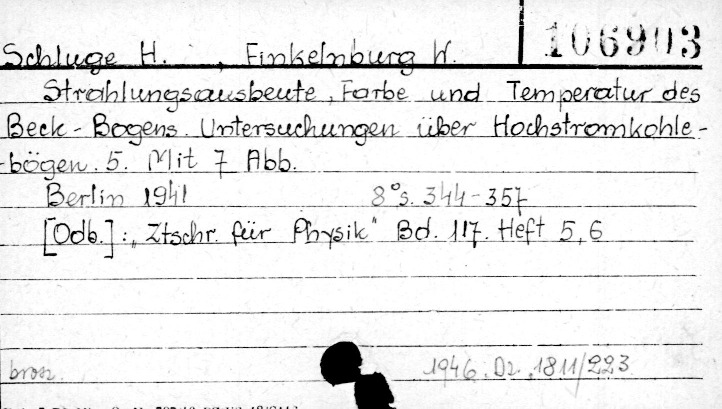 106903
Schluge H. , Finkelnburg W.
Strahlungsausbeute, Farbe und Temperatur des
Beck-Bogens. Untersuchungen über Hochstromkohle-
-bögen. 5. Mit 7 Abb.
Berlin 1941 8° s. 344-357
[Odb.]: „Ztschr. für Physik" Bd. 117. Heft 5,6
brosz. 1946. Dz. 1811/223